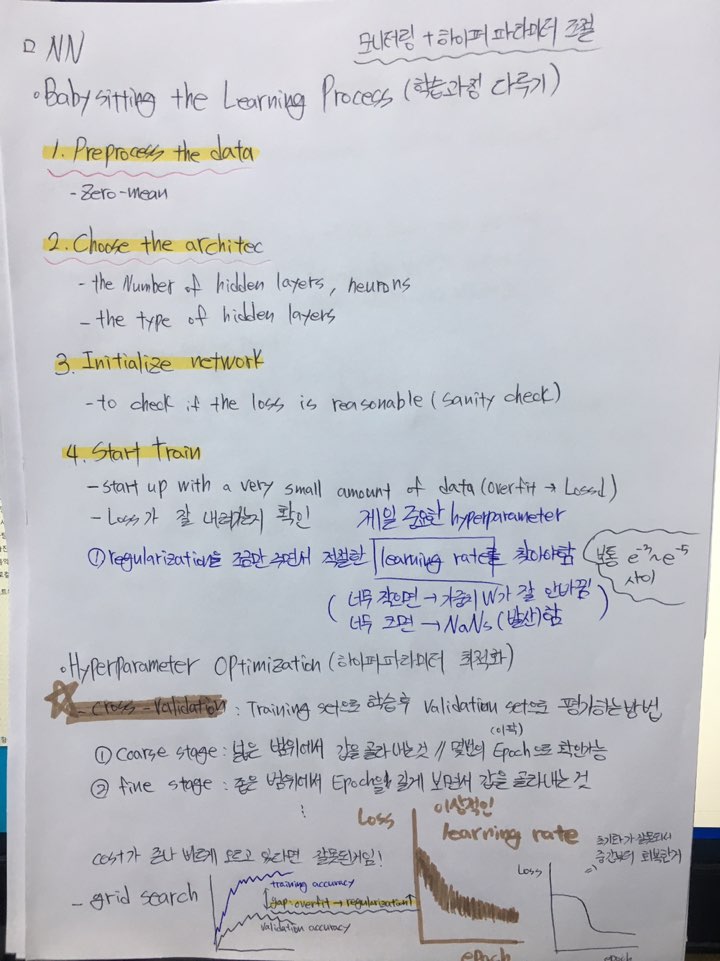 모니터링 + 하이퍼파라미터 조절
□ NN
• Babysitting the Learning Process (학습과정 다루기)
1. Preprocess the data
- Zero-mean
2. Choose the architec
- the Number of hidden layers, neurons
- the type of hidden layers
3. Initialize network
- to check if the loss is reasonable (sanity check)
4. Start Train
- start up with a very small amount of data (overfit → Loss↓)
- Loss가 잘 내려가는지 확인
제일 중요한 hyperparameter
① regularization을 조금만 주면서 적절한 learning rate를 찾아야함
보통 e⁻³~e⁻⁵
사이
(너무 작으면 → 가중치 W가 잘 안바뀜
너무 크면 → NaNs (발산)함)
• Hyperparameter Optimization (하이퍼파라미터 최적화)
☆ - cross-validation : Training set으로 학습후 validation set으로 평가하는 방법
① coarse stage : 넓은 범위에서 값을 골라내는 것 // 몇번의 Epoch으로 확인가능
② fine stage : 좁은 범위에서 Epoch을 길게 보면서 값을 골라내는 것
⋮
cost가 존나 빠르게 오르고 있다면 잘못된거임!
- grid search
training accuracy
gap: overfit → regularization↑
validation accuracy
Loss
이상적인
learning rate
epoch
초기화가 잘못되서
중간부터 회복한거
Loss
epoch